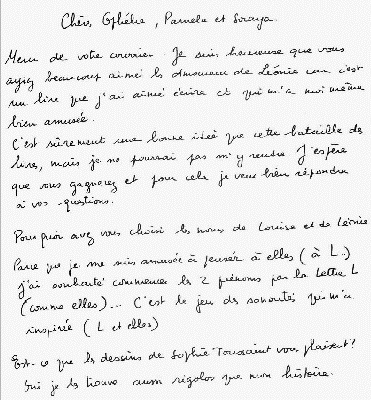 Chères Ophélie, Pamela et Soraya.
Merci de votre courrier. Je suis heureuse que vous
ayiez beaucoup aimé les amoureux de Léonie car c'est
un livre que j'ai aimé écrire et qui m'a moi même
bien amusée.
C'est sûrement une bonne idée que cette bataille de
livre, mais je ne pourrai pas m'y rendre. J'espère
que vous gagnerez et pour cela je veux bien répondre
à vos questions.
Pourquoi avez vous choisi les noms de Louise et de Léonie
Parce que je me suis amusée à penser à elles (à L..)
j'ai souhaité commencer les 2 prénoms par la lettre L
(comme elles)... C'est le jeu des sonorités qui m'a
inspirée (L et elles)
Est-ce que les dessins de Sophie Toussaint vous plaisent?
Oui je les trouve aussi rigolos que mon histoire.